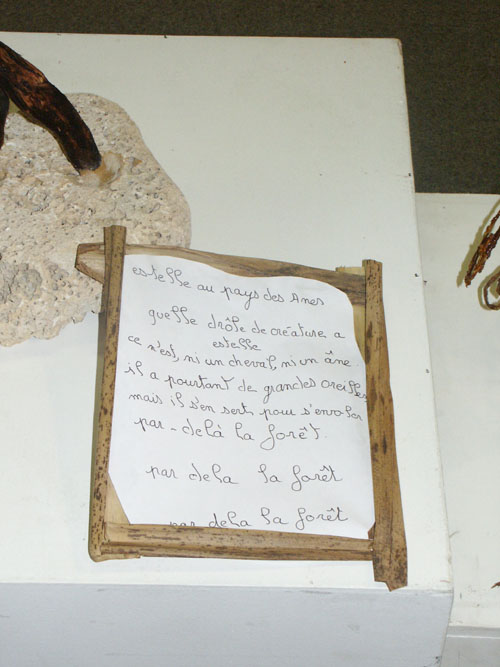 estelle au pays des Anes
quelle drôle de créature a
estelle
ce n'est, ni un cheval, ni un âne
il a pourtant de grandes oreilles
mais il s'en sert pour s'envoler
par-delà la forêt.
par dela la forêt
par dela la forêt